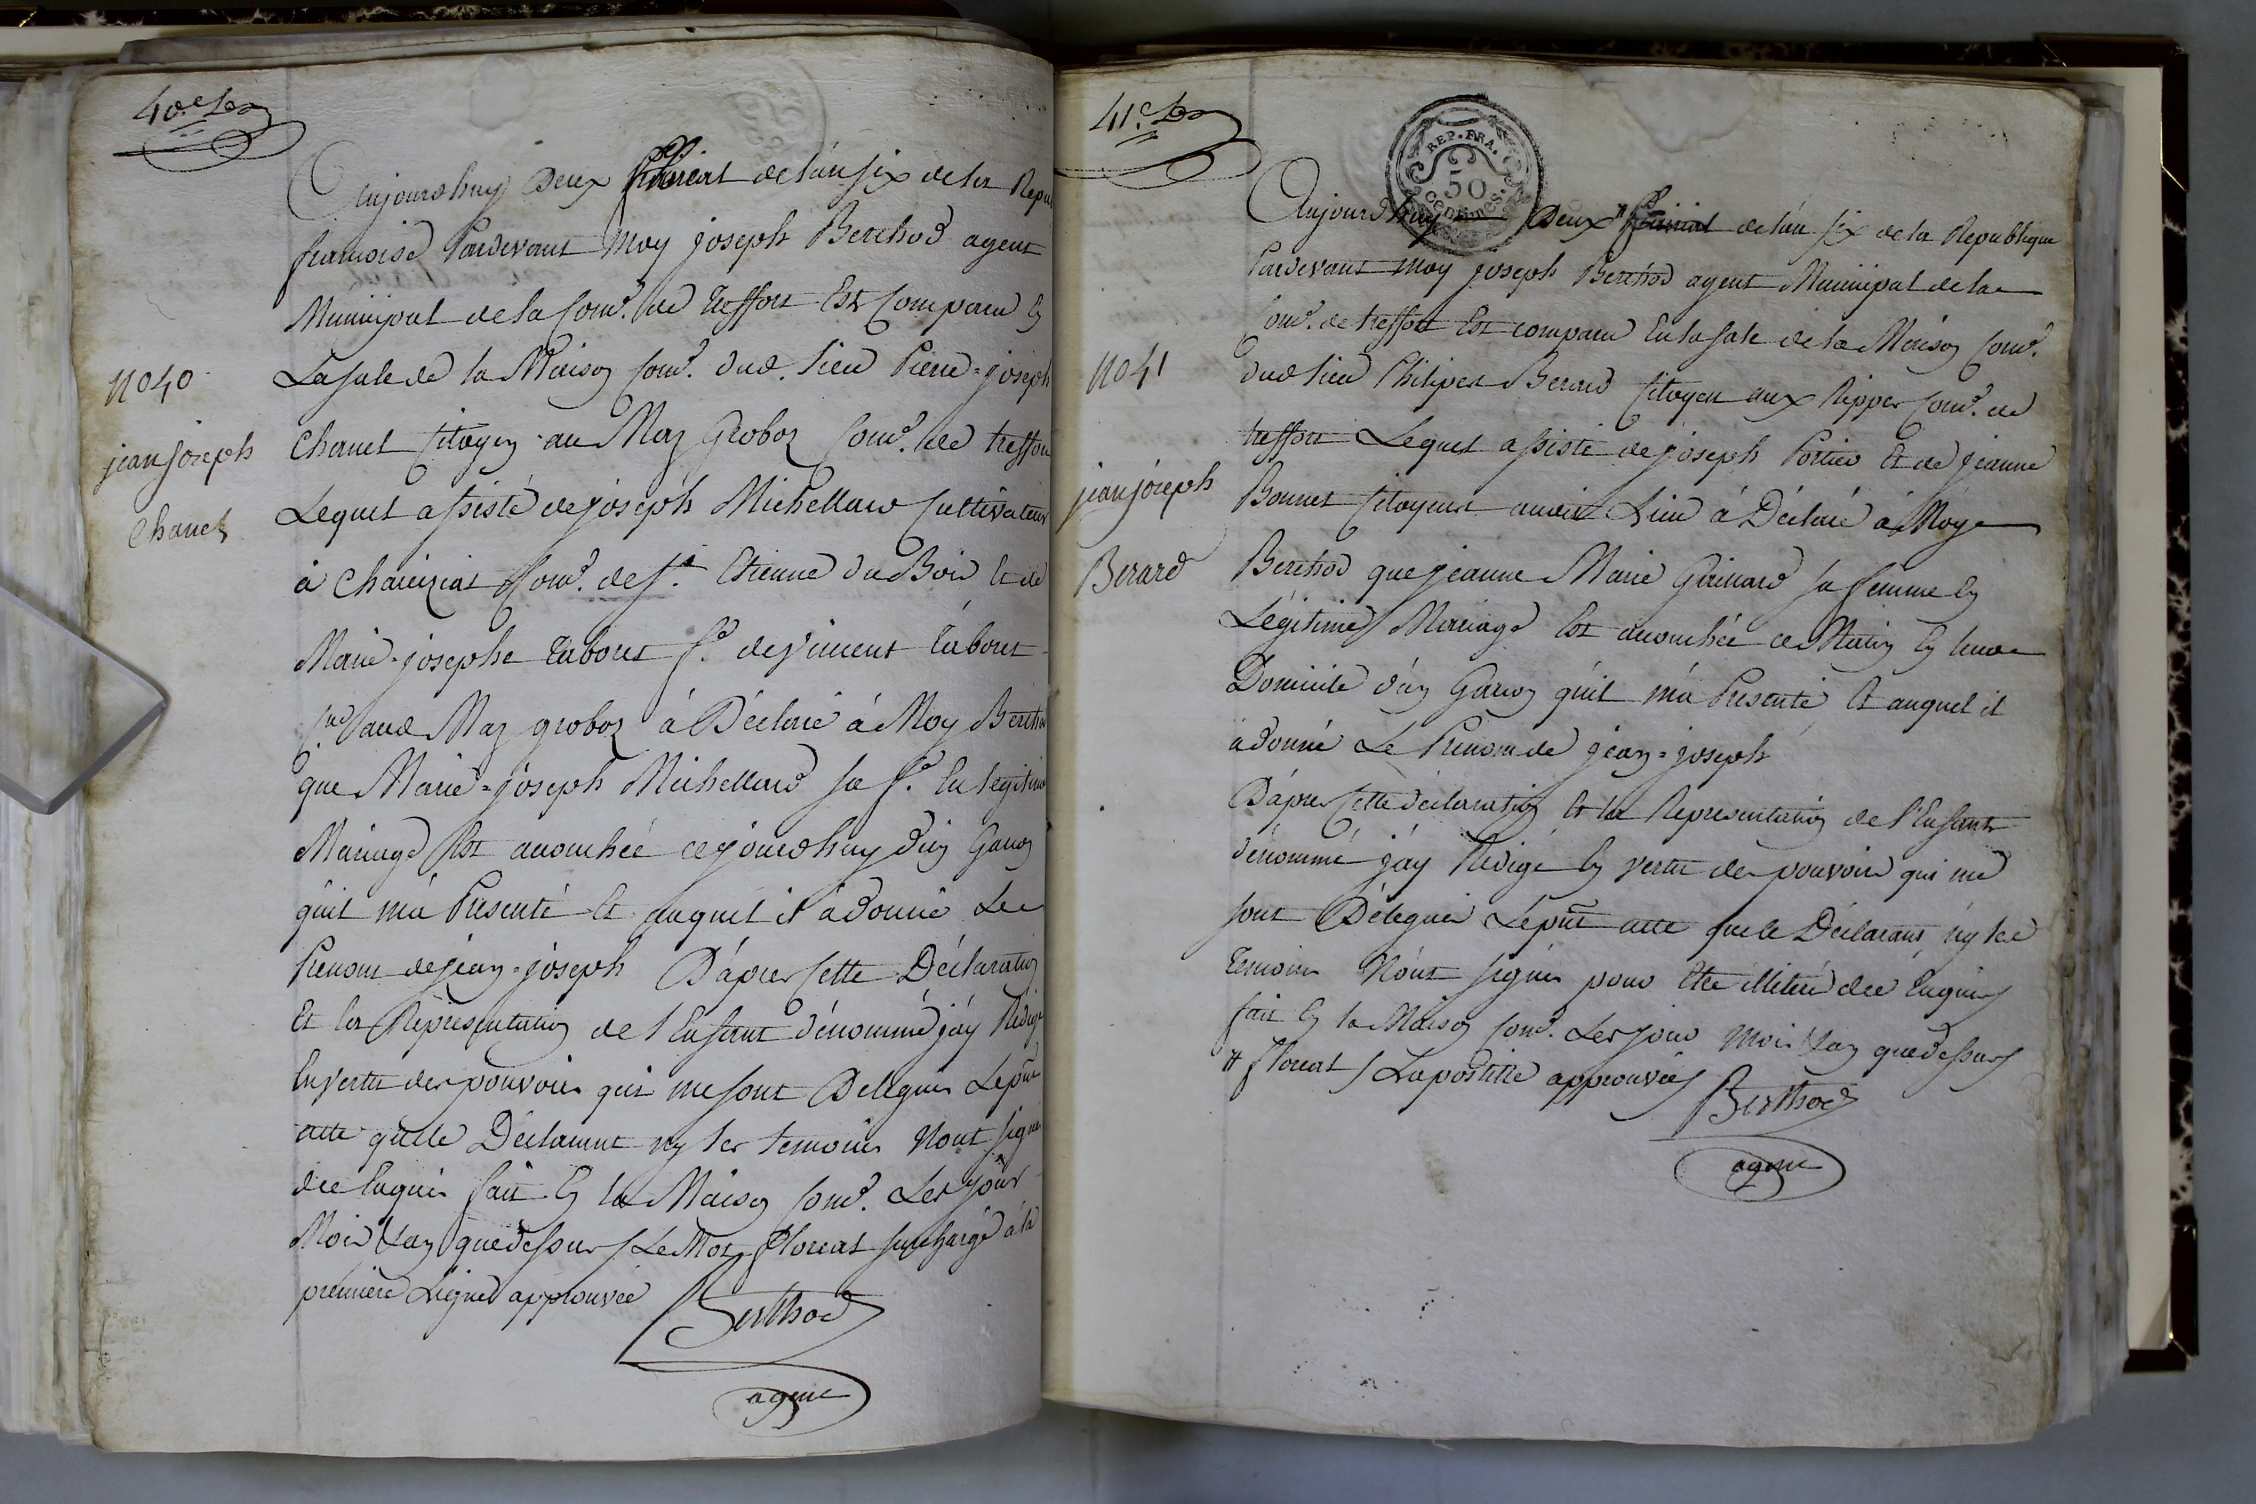 40.e
Aujourdhuy Deux floreal de l'an six de la Repu
francoise Pardevant moy joseph Berthod agent
Municipal de la Com.e de treffort Est Comparu En
La sale de la Maison Com.e dud. lieu Pierre=joseph
Chanel Citoyen au Maz Groboz Com.e de treffort
Lequel assisté de joseph Michellard Cultivateur
à Chareiziat Com.e de St. Etienne du Bois Et de
Marie-josephe tabouret f.e de vincent tabouret
aud Maz groboz à Déclaré à Moy Berthod
que Marie=joseph Michellard sa f.e En legitime
Mariage Est accouchée cejourdhuy d'un Garcon
qu'il m'a Presenté Et auquel il a donné Le
Prenom de jean=joseph D'apres Cette Déclaration
Et la Representation de l'Enfant dénommé j'ay Redigé
En vertu des pouvoirs qui me sont Delegués Le pnt
acte que le Déclarant ny les temoins N'ont signé
de ce Enquis fait En la Maison Com.e Les jour
Mois & an que dessus / Le Mot floreal surchargé à la
premiere Ligne approuvée
Berthod
agent
no 40
jean joseph
Chanel
41.e
REP. FRA.
50
centimes.
Aujourdhuy Deux # prairial de l'an six de la Republique
Pardevant moy joseph Berthod agent Municipal de la
Com.e de treffort Est comparu En la sale de la Maison Com.e
dud lieu Philipert Berard Citoyen aux Rippes Com.e de
treffort Lequel assisté de joseph Portier Et de jeanne
Bonnet Citoyens aud. Lieu à Déclaré à Moy
Berthod que jeanne Marie Guinard sa femme En
Légitime Mariage Est accouchée ce Matin En leur
Domicile d'un Garcon qu'il m'a Presenté Et auquel il
a donné Le Prenom de jean=joseph
D'apres Cette déclaration Et la Representation de l'Enfant
dénommé j'ay Redigé En vertu des pouvoirs qui me
sont Délegués Le pnt acte que le Déclarant ny les
temoins N'ont signés pour Etre illiteré de ce Enquis
fait En la Maison Com.e Les jour Mois & an que dessus
# floreal / La postille approuvée
Berthod
agent
no 41
jean joseph
Berard